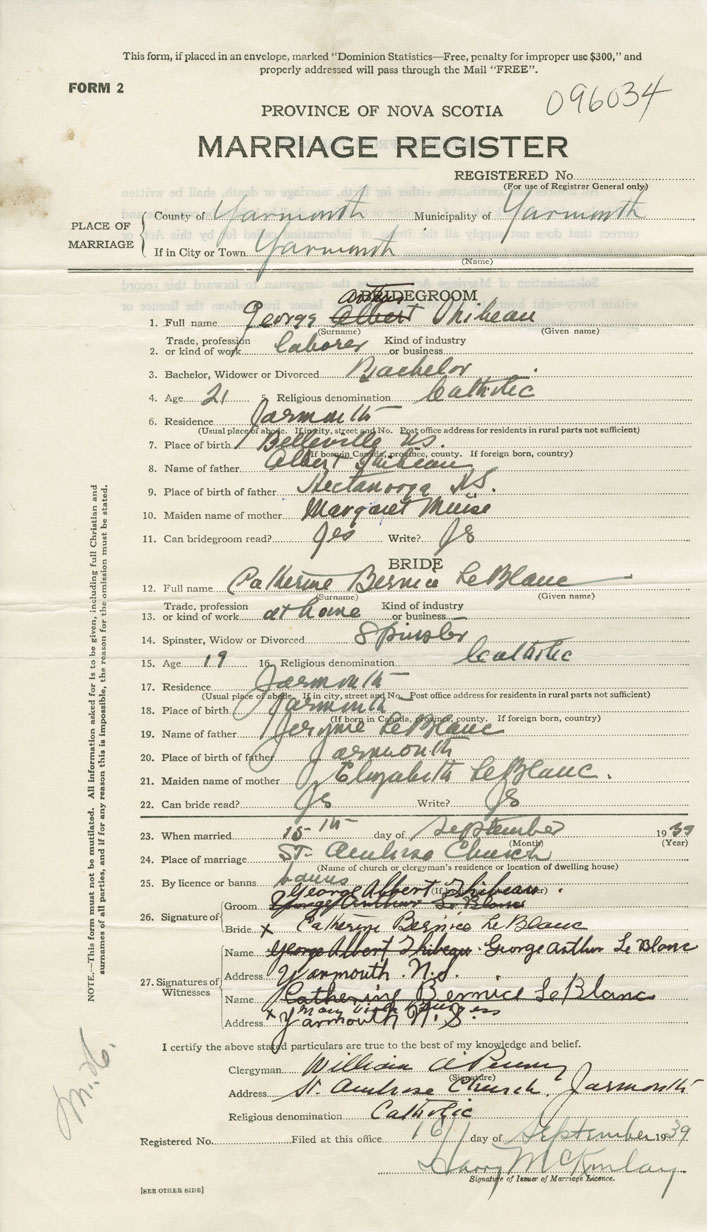 This form, if placed in an envelope, marked "Dominion Statistics—Free, penalty for improper use $300," and
properly addressed will pass through the Mail "FREE".
FORM 2
096034
PROVINCE OF NOVA SCOTIA
MARRIAGE REGISTER
REGISTERED No
(For use of Registrar General only)
PLACE OF MARRIAGE
County of Yarmouth Municipality of Yarmouth
If in City or Town Yarmouth
(Name)
BRIDEGROOM
1. Full name George Albert Thibeau
(Surname) (Given name)
2. Trade, profession or kind of work laborer Kind of industry or business
3. Bachelor, Widower or Divorced Bachelor
4. Age 21 5. Religious denomination Catholic
6. Residence Yarmouth
(Usual place of abode. If in city, street and No. Post office address for residents in rural parts not sufficient)
7. Place of birth Belleville NS.
(If born in Canada, province, county. If foreign born, country)
8. Name of father Albert Thibeau
9. Place of birth of father Hectanooga N.S.
10. Maiden name of mother Margaret Muise
11. Can bridegroom read? Yes Write? Yes
BRIDE
12. Full name Catherine Bernice LeBlanc
(Surname) (Given name)
13. Trade, profession or kind of work at home Kind of industry or business
14. Spinster, Widow or Divorced Spinster
15. Age 19 16. Religious denomination Catholic
17. Residence Yarmouth
(Usual place of abode. If in city, street and No. Post office address for residents in rural parts not sufficient)
18. Place of birth Yarmouth
(If born in Canada, province, county. If foreign born, country)
19. Name of father Jerome LeBlanc
20. Place of birth of father Yarmouth
21. Maiden name of mother Elizabeth LeBlanc.
22. Can bride read? Yes Write? Yes
23. When married 15th day of September 1939
(Month) (Year)
24. Place of marriage St. Ambrose Church
(Name of church or clergyman's residence or location of dwelling house)
25. By licence or banns banns
George Albert Thibeau.
26. Signature of
Groom George Arthur Le Blanc
Bride x Catherine Bernice LeBlanc
27. Signatures of Witnesses
Name George Albert Thibeau George Arthur Le Blanc
Address Yarmouth. N.S.
Name Catherine Bernice LeBlanc
x Mary
Address Yarmouth N. S.
I certify the above stated particulars are true to the best of my knowledge and belief.
Clergyman William
(Signature)
Address St. Ambrose Church, Yarmouth
Religious denomination Catholic
Registered No. Filed at this office 16 day of September 1939
Harry McKinlay
Signature of Issuer of Marriage Licence.
[SEE OTHER SIDE]
NOTE.—This form must not be mutilated. All information asked for is to be given, including full Christian and
surnames of all parties, and if for any reason this is impossible, the reason for the omission must be stated.